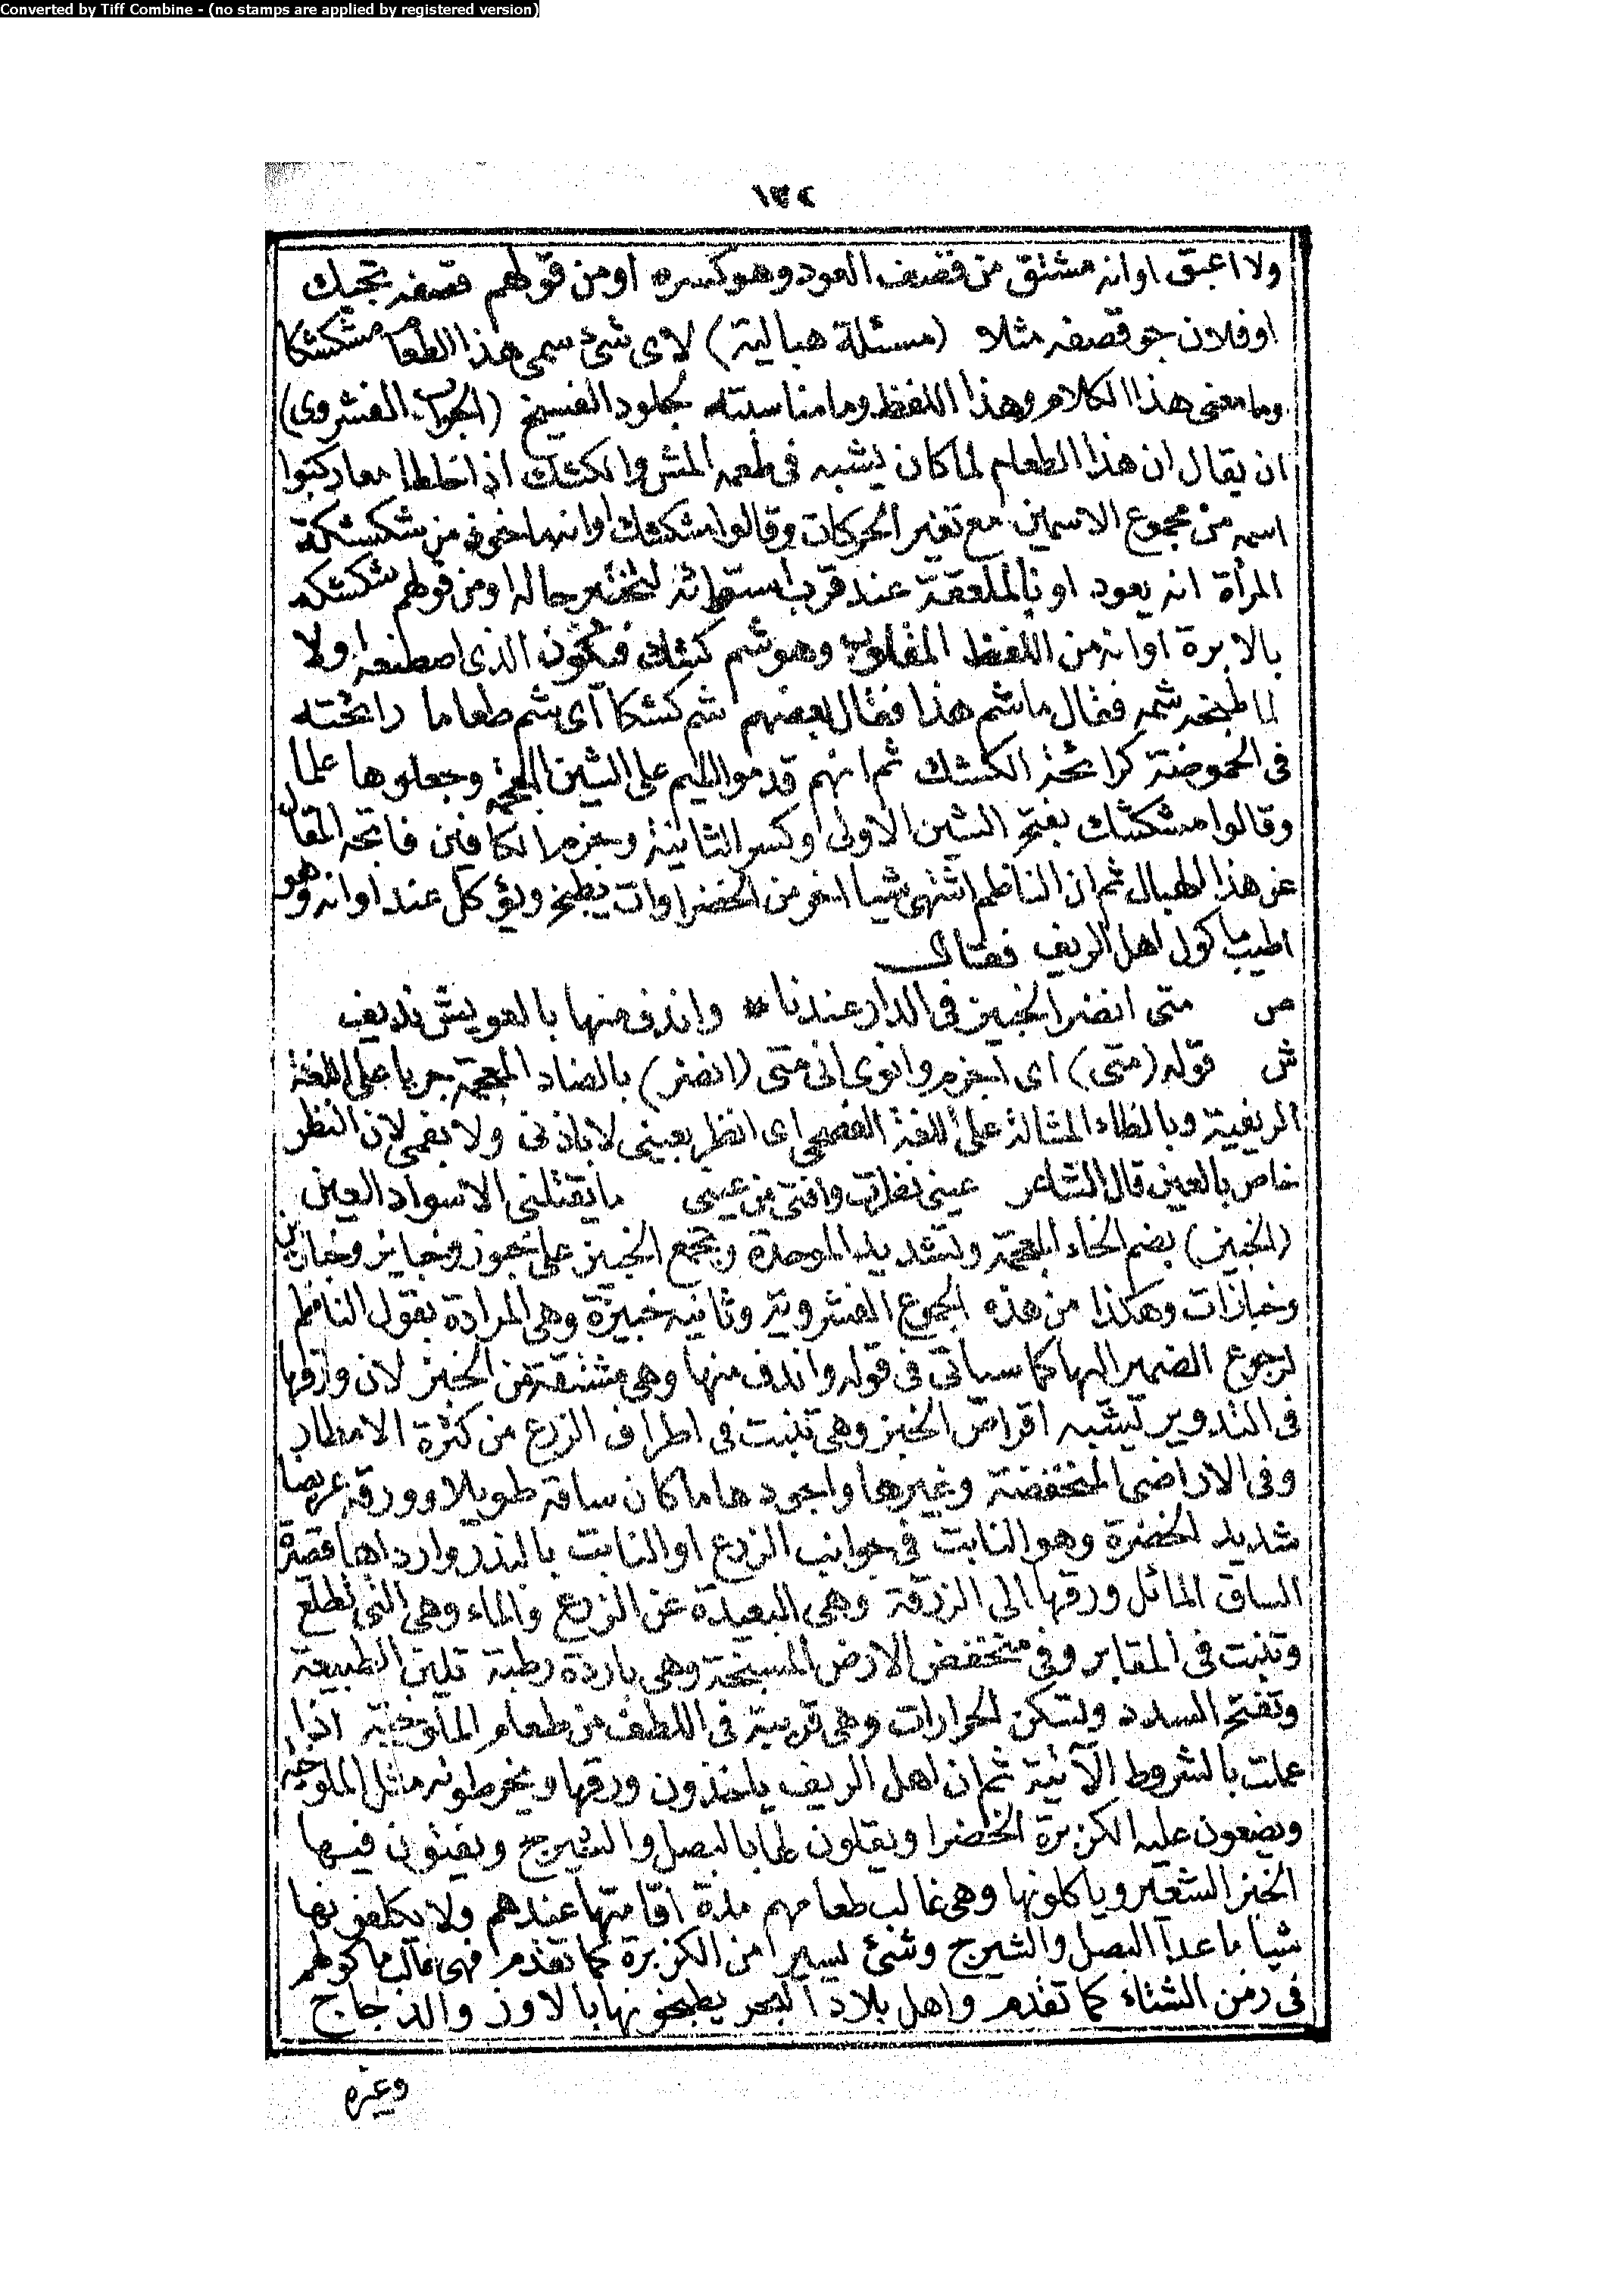 Converted by Tiff Combine - (no stamps are applied by registered version)
١٣٢
ولا اعبق او انه مشتق من قصف العود وهو كسره او من قولهم قصفه تجيك
او فلان جو قصفه مثلا (مسئلة هبالية) لاى شئ سمى هذا الطعام مشكشكا
وما معنى هذا الكلام وهذا اللفظ وما مناسبته بجلود الفسيخ (الجواب الفشروى)
ان يقال ان هذا الطعام لما كان يشبه فى طعمه المش والكشك اذا خلطا معا ركبوا
اسمه من مجموع الاسمين مع تغير الحركات وقالوا مشكشك او انه ماخوذ من شكشكة
المرأة انه يعود او بالملعقة عند قرب استوائه لتختبر حاله او من قولهم شكشكه
بالابرة او انه من اللفظ المقلوب وهو شم كشك فيكون الذى اصطنعه اولا
لما طبخه شمه فقال ما شم هذا فقال بعضهم شم كشكا اى شم طعاما رائحته
فى الحموضة كرائحة الكشك ثم انهم قدموا الميم على الشين المعجمة وجعلوها علما
وقالوا مشكشك بفتح الشين الاولى وكسر الثانية وجزم الكافين فاتجه المقال
عن هذا الهبال ثم ان الناظم اشتهى شيا اخر من الخضراوات يطبخ ويؤكل عند اوانه وهو
اطيب ماكول اهل الريف فقال
ص متى انضر الخبيز فى الدار عندنا * واندف منها بالعويش نديف
ش قوله (متى) اى اجزم وانوى انى متى (انضر) بالضاد المعجمة جريا على اللغة
الريفية وبالظاء المشالة على اللغة الفصحى اى انظر بعينى لا باذنى ولا بفمى لان النظر
خاص بالعين قال الشاعر عينى نظرت وافتى من عينى ما يقتلنى الاسواد العين
(الخبيز) بضم الخاء المعجمة وتشديد الموحدة ويجمع الخبيز على خبوز وخبايز وخبازين
وخبازات وهكذا من هذه الجموع الفشروية وثانيه خبيزة وهى المرادة بقول الناظم
لرجوع الضمير اليها كما سياتى فى قوله واندف منها وهى مشتقة من الخبز لان ورقها
فى التدوير يشبه اقراص الخبز وهى تنبت فى اطراف الزرع من كثرة الامطار
وفى الاراضى المنخفضة وغيرها واجودها ما كان ساقه طويلا وورقه عريضا
شديد الخضرة وهو النابت فى جوانب الزرع او النابت بالبذر وارداها قصيرة
الساق المائل ورقها الى الزرقة وهى البعيدة عن الزرع والماء وهى التى تطلع
وتنبت فى المقابر وفى منخفض الارض المسبخة وهى باردة رطبة تلين الطبيعة
وتفتح السدد وتسكن الحرارات وهى قريبة فى اللطف من طعام الملوخية اذا
عملت بالشروط الآتية ثم ان اهل الريف ياخذون ورقها ويخرطونه مثل الملوخية
ويضعون عليه الكزبرة الخضرا ويقلون لها بالبصل والشيرج ويفتون فيها
الخبز الشعير وياكلونها وهى غالب طعامهم مدة اقامتها عندهم ولا يكلفونها
شيا ما عدا البصل والشيرج وشئ يسير من الكزبرة كما تقدم فهى غالب ماكولهم
فى زمن الشتاء كما تقدم واهل بلاد البحر يطبخونها بالاوز والدجاج
وغيره